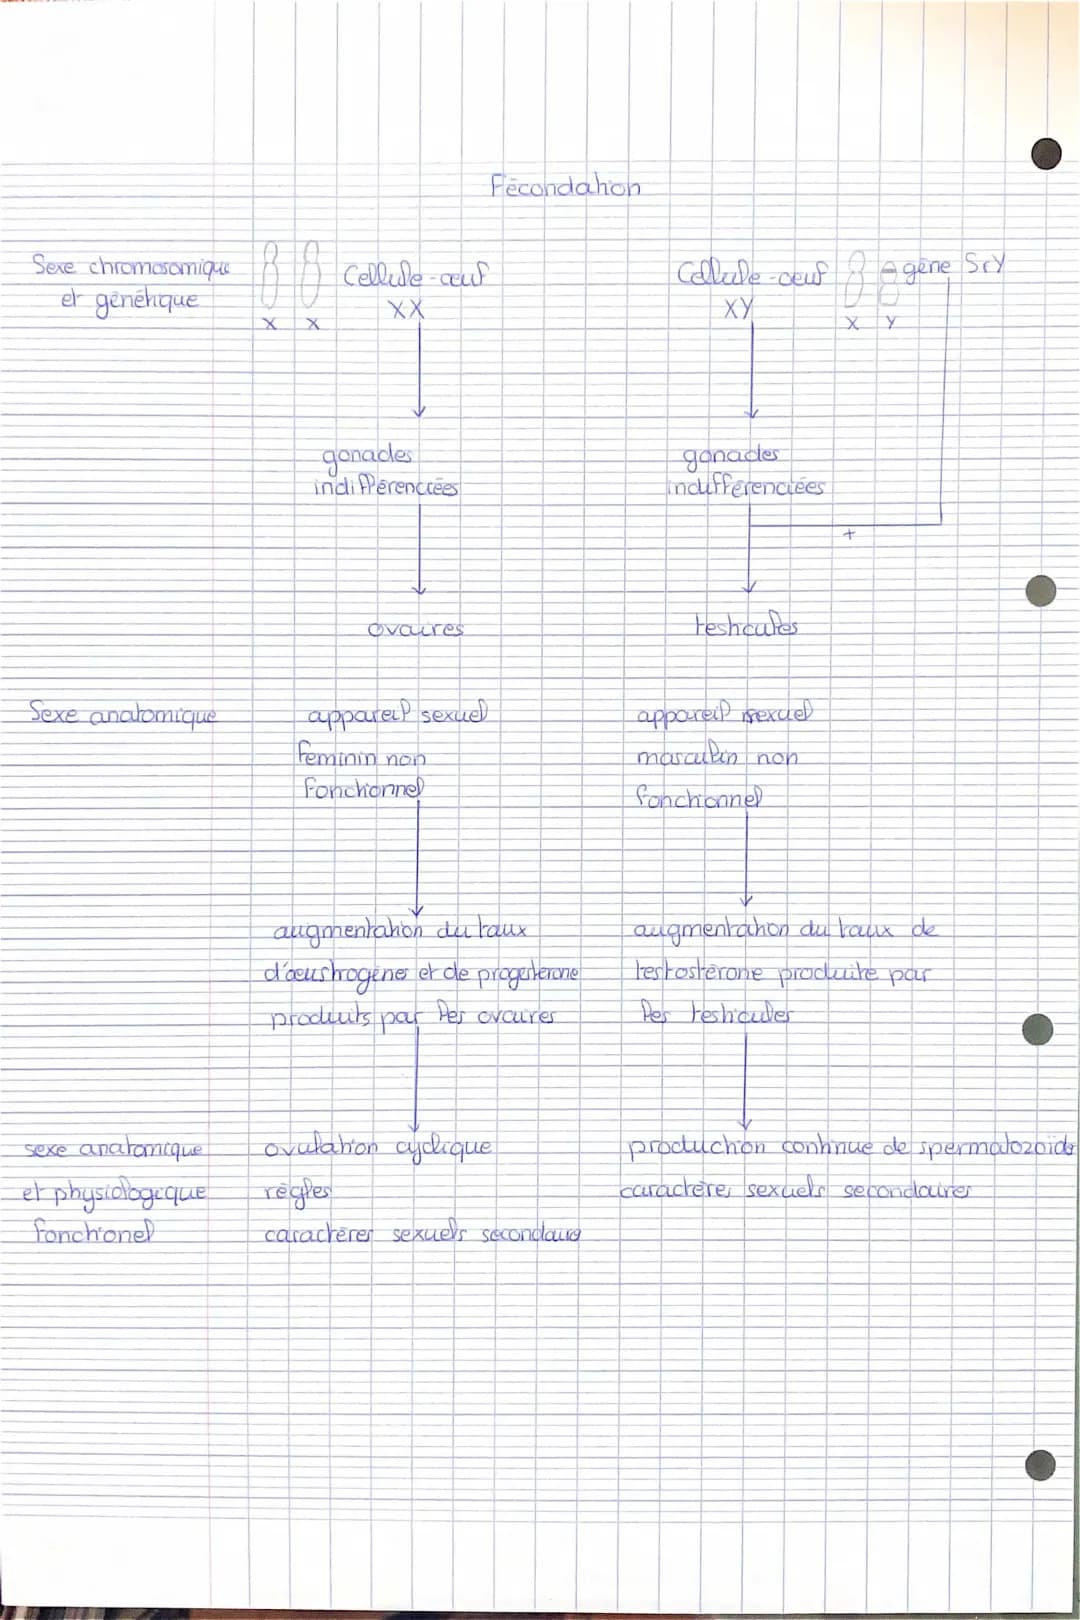 Fécondation
Sexe chromosomique
et génétique
X X
Cellule-œuf
XX
Cellule-œuf
XY
X Y
gène SrY
gonades
indifférenciées
gonades
indifférenciées
+
ovaires
testicules
Sexe anatomique
appareil sexuel
féminin non
fonctionnel
appareil sexuel
masculin non
fonctionnel
augmentation du taux
d'œustrogènes et de progestérone
produits par les ovaires
augmentation du taux de
testostérone produite par
les testicules
sexe anatomique
et physiologique
fonctionel
ovulation cyclique
règles
caractères sexuels secondaires
production continue de spermatozoïde
caractères sexuels secondaires